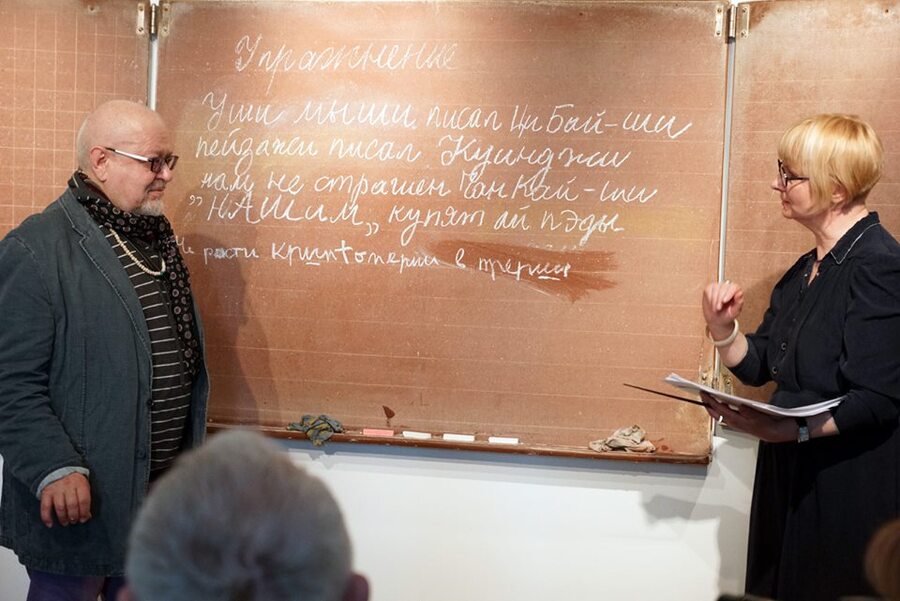 Упражнение
Уши мыши писал Ци Бай-ши
пейзажи писал Куинджи
нам не страшен Чан Кай-ши
"НАШИМ" купят ай пэды
и расти криптоперии в трерии